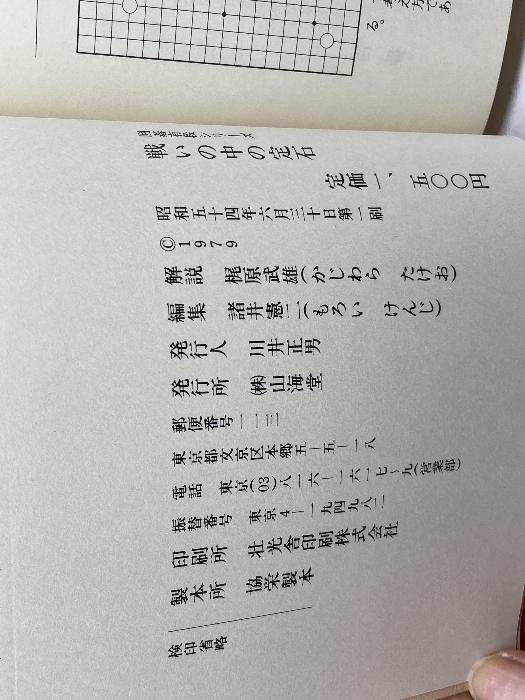 囲碁背水シリーズ
戦いの中の定石
定価一、五〇〇円
昭和五十四年六月三十日第一刷
©1979
解説　梶原武雄(かじわら　たけお)
編集　諸井憲二(もろい　けんじ)
発行人　川井正男
発行所　㈱山海堂
郵便番号一一三
東京都文京区本郷五ー五ー一八
電話　東京(03)八一六ー一六一七～九(営業部)
振替番号　東京4ー一九四九八二
印刷所　壮光舎印刷株式会社
製本所　協栄製本
検印省略